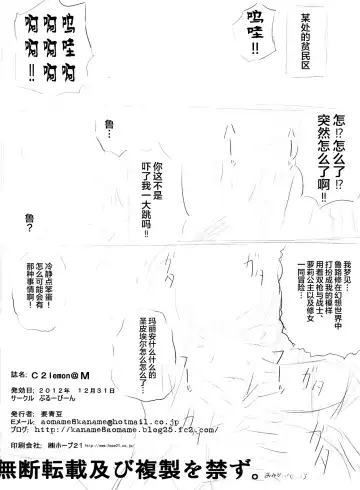 某处的贫民区
呜哇!!
啊啊啊
啊啊啊
啊啊!!
怎!?怎么了!?
突然怎么了啊!!
鲁…
你这不是
吓了我一大跳吗!!
ハーッ
ハーッ
鲁?
冷静点笨蛋!
怎么可能会有
那种事情啊!
我梦见…
鲁路修在幻想世界中
打扮成我的模样
用着双枪与战士、
萝莉公主以及修女
一同冒险…
玛丽安什么什么的
圣皮埃尔怎么怎么了…
ガタ
ガタ
ガタ
ガタ
誌名: C2lemon@M
発効日: 2012年 12月31日
サークル ぶるーびーん
発行者: 要青豆
Eメール: aomame8kaname@hotmail.co.jp
ブログ: http://kaname8aomame.blog25.fc2.com/
印刷会社: ㈱ホープ21 http://www.hope21.co.jp/
無断転載及び複製を禁ず。